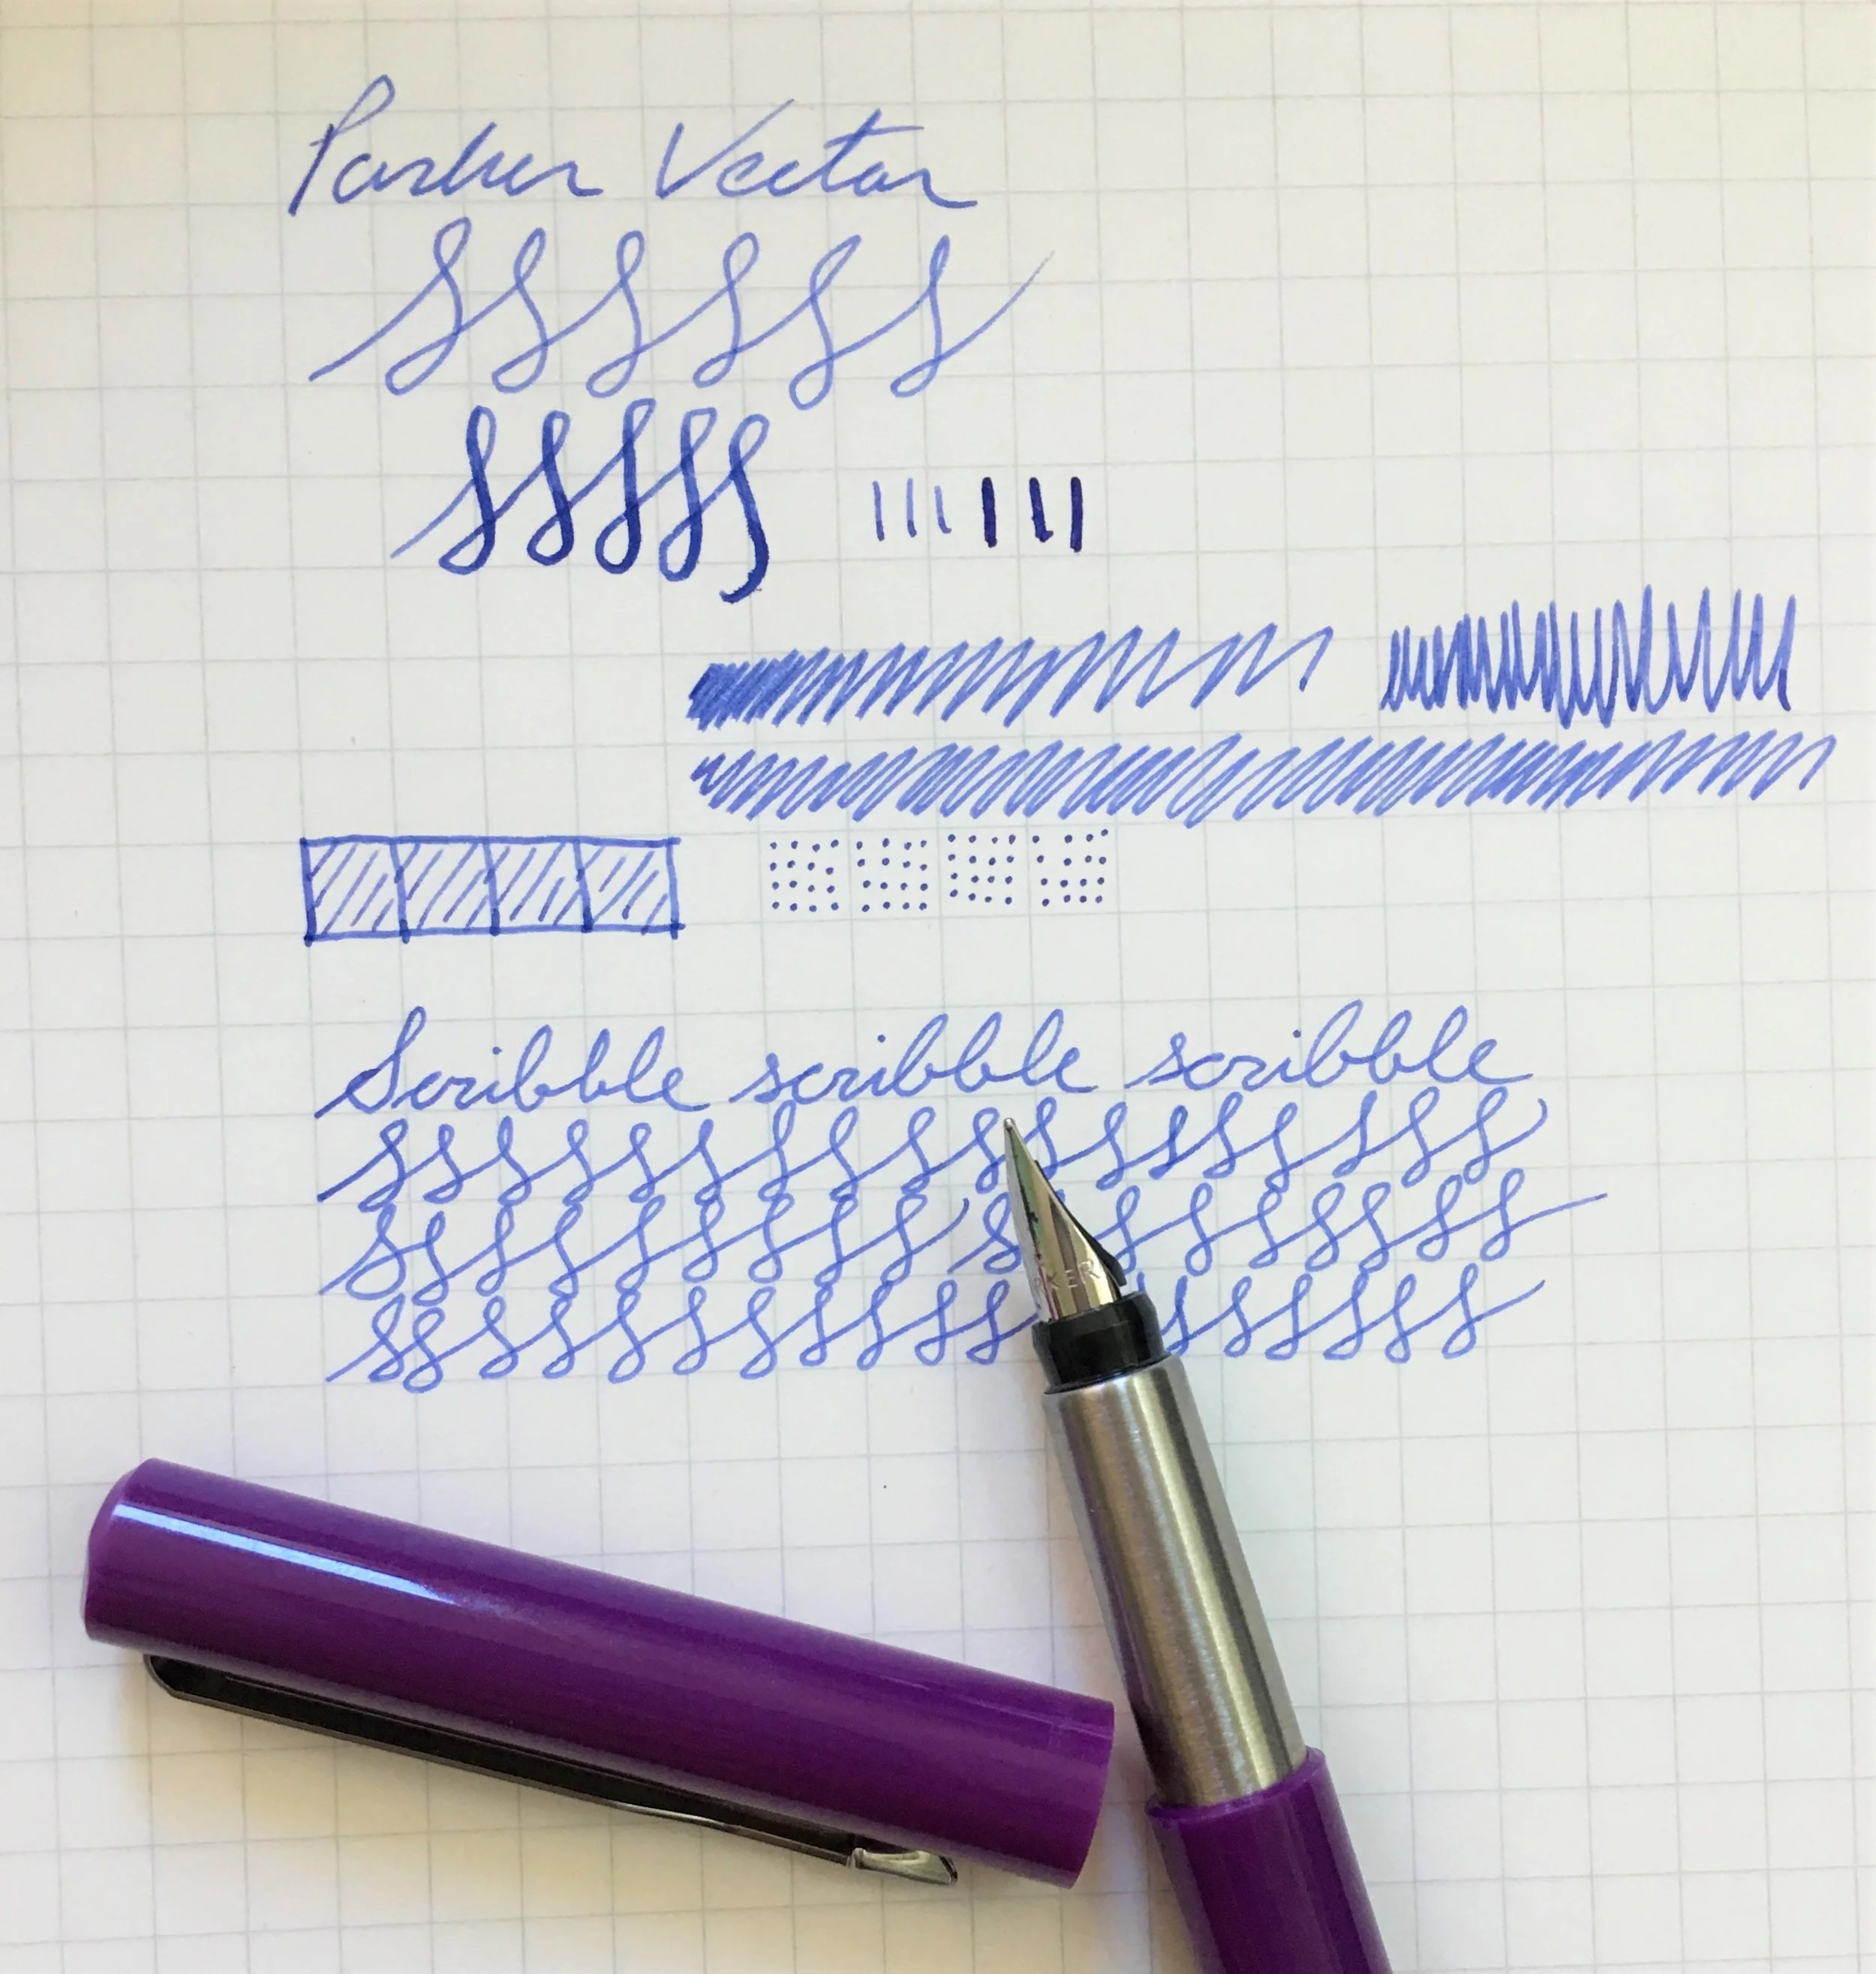 Parker Vector
Scribble scribble scribble
RKER